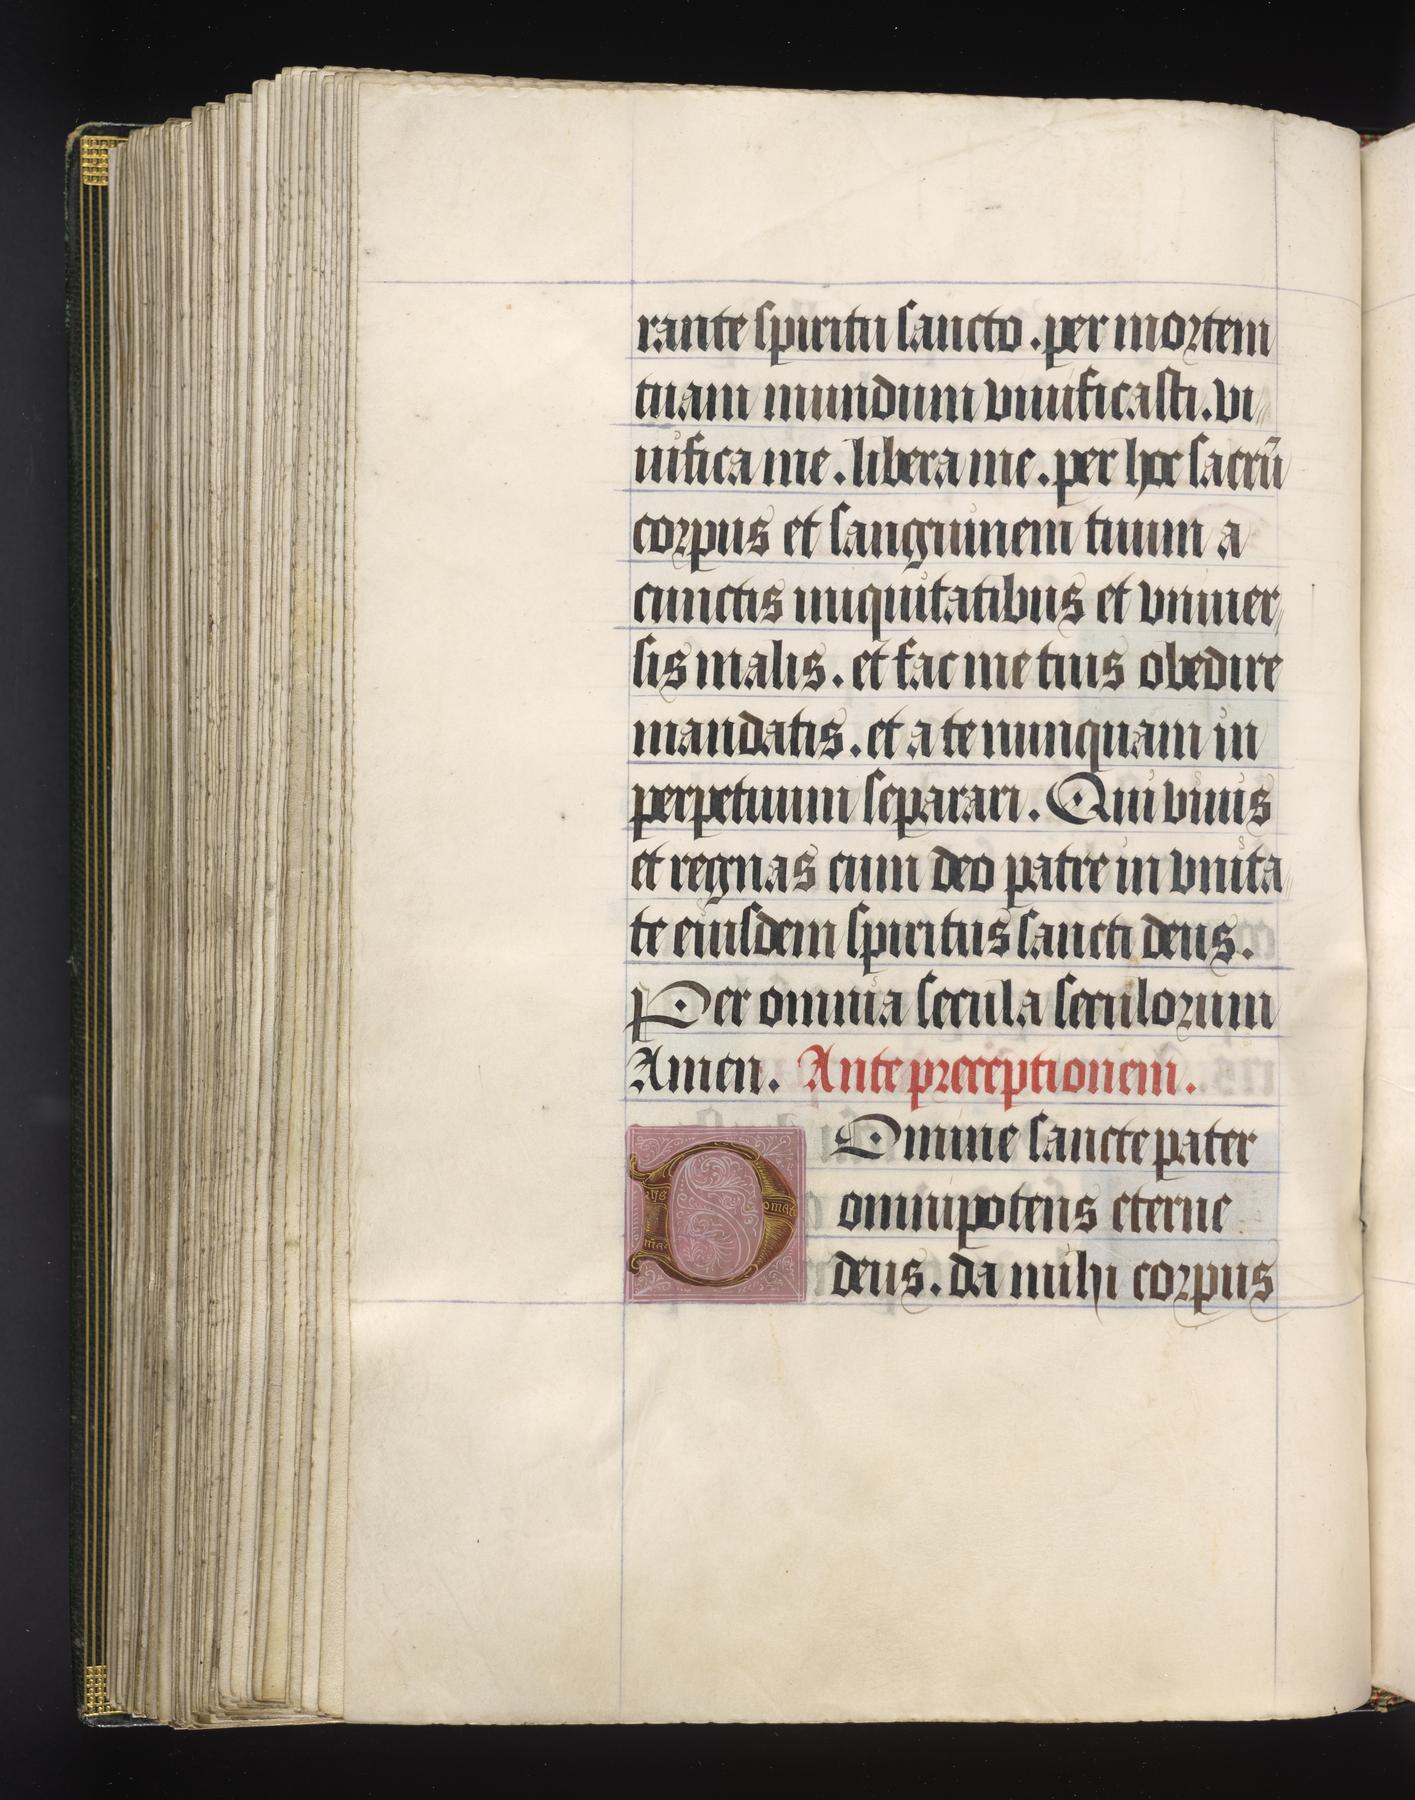 rante spiritu sancto . per mortem
tuam mundum viuificasti . vi//
uifica me . libera me . per hoc sacrū
corpus et sanguinem tuum a
cunctis iniquitatibus et vniuer//
sis malis . et fac me tuis obedire
mandatis . et a te nunquam in
perpetuum separari . Qui viuis
et regnas cum deo patre in vnita//
te eiusdem spiritus sancti deus .
Per omnia secula seculorum
Amen . Ante preceptionem .
D Omine sancte pater
omnipotens eterne
deus . da mihi corpus